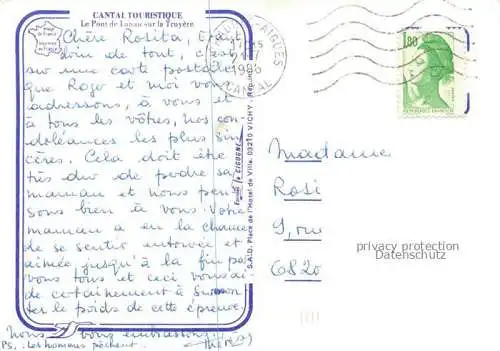 CANTAL TOURISTIQUE
Le Pont de Lanau sur la Truyère
Chère Rosita, Etant
loin de tout, c'est
sur une carte postale
que Roger et moi vous
adressons, à vous et
à tous les vôtres, nos con-
doléances les plus sin-
cères. Cela doit être
très dur de perdre sa
maman et nous pen-
sons bien à vous. Votre
maman a eu la chance
de se sentir entourée et
aimée jusqu'à la fin par
vous tous et ceci vous ai-
de certainement à surmon-
ter le poids de cette épreuve.
Nous vous embrassons.
PS. Les hommes pêchent.
S.A.D. Place de l'Hotel de Ville. 03210 VICHY
CHAUDES-AIGUES
1986
CANTAL
1,80
REPUBLIQUE FRANÇAISE
Madame
Rosi
9, rue
6820
privacy protection
Datenschutz